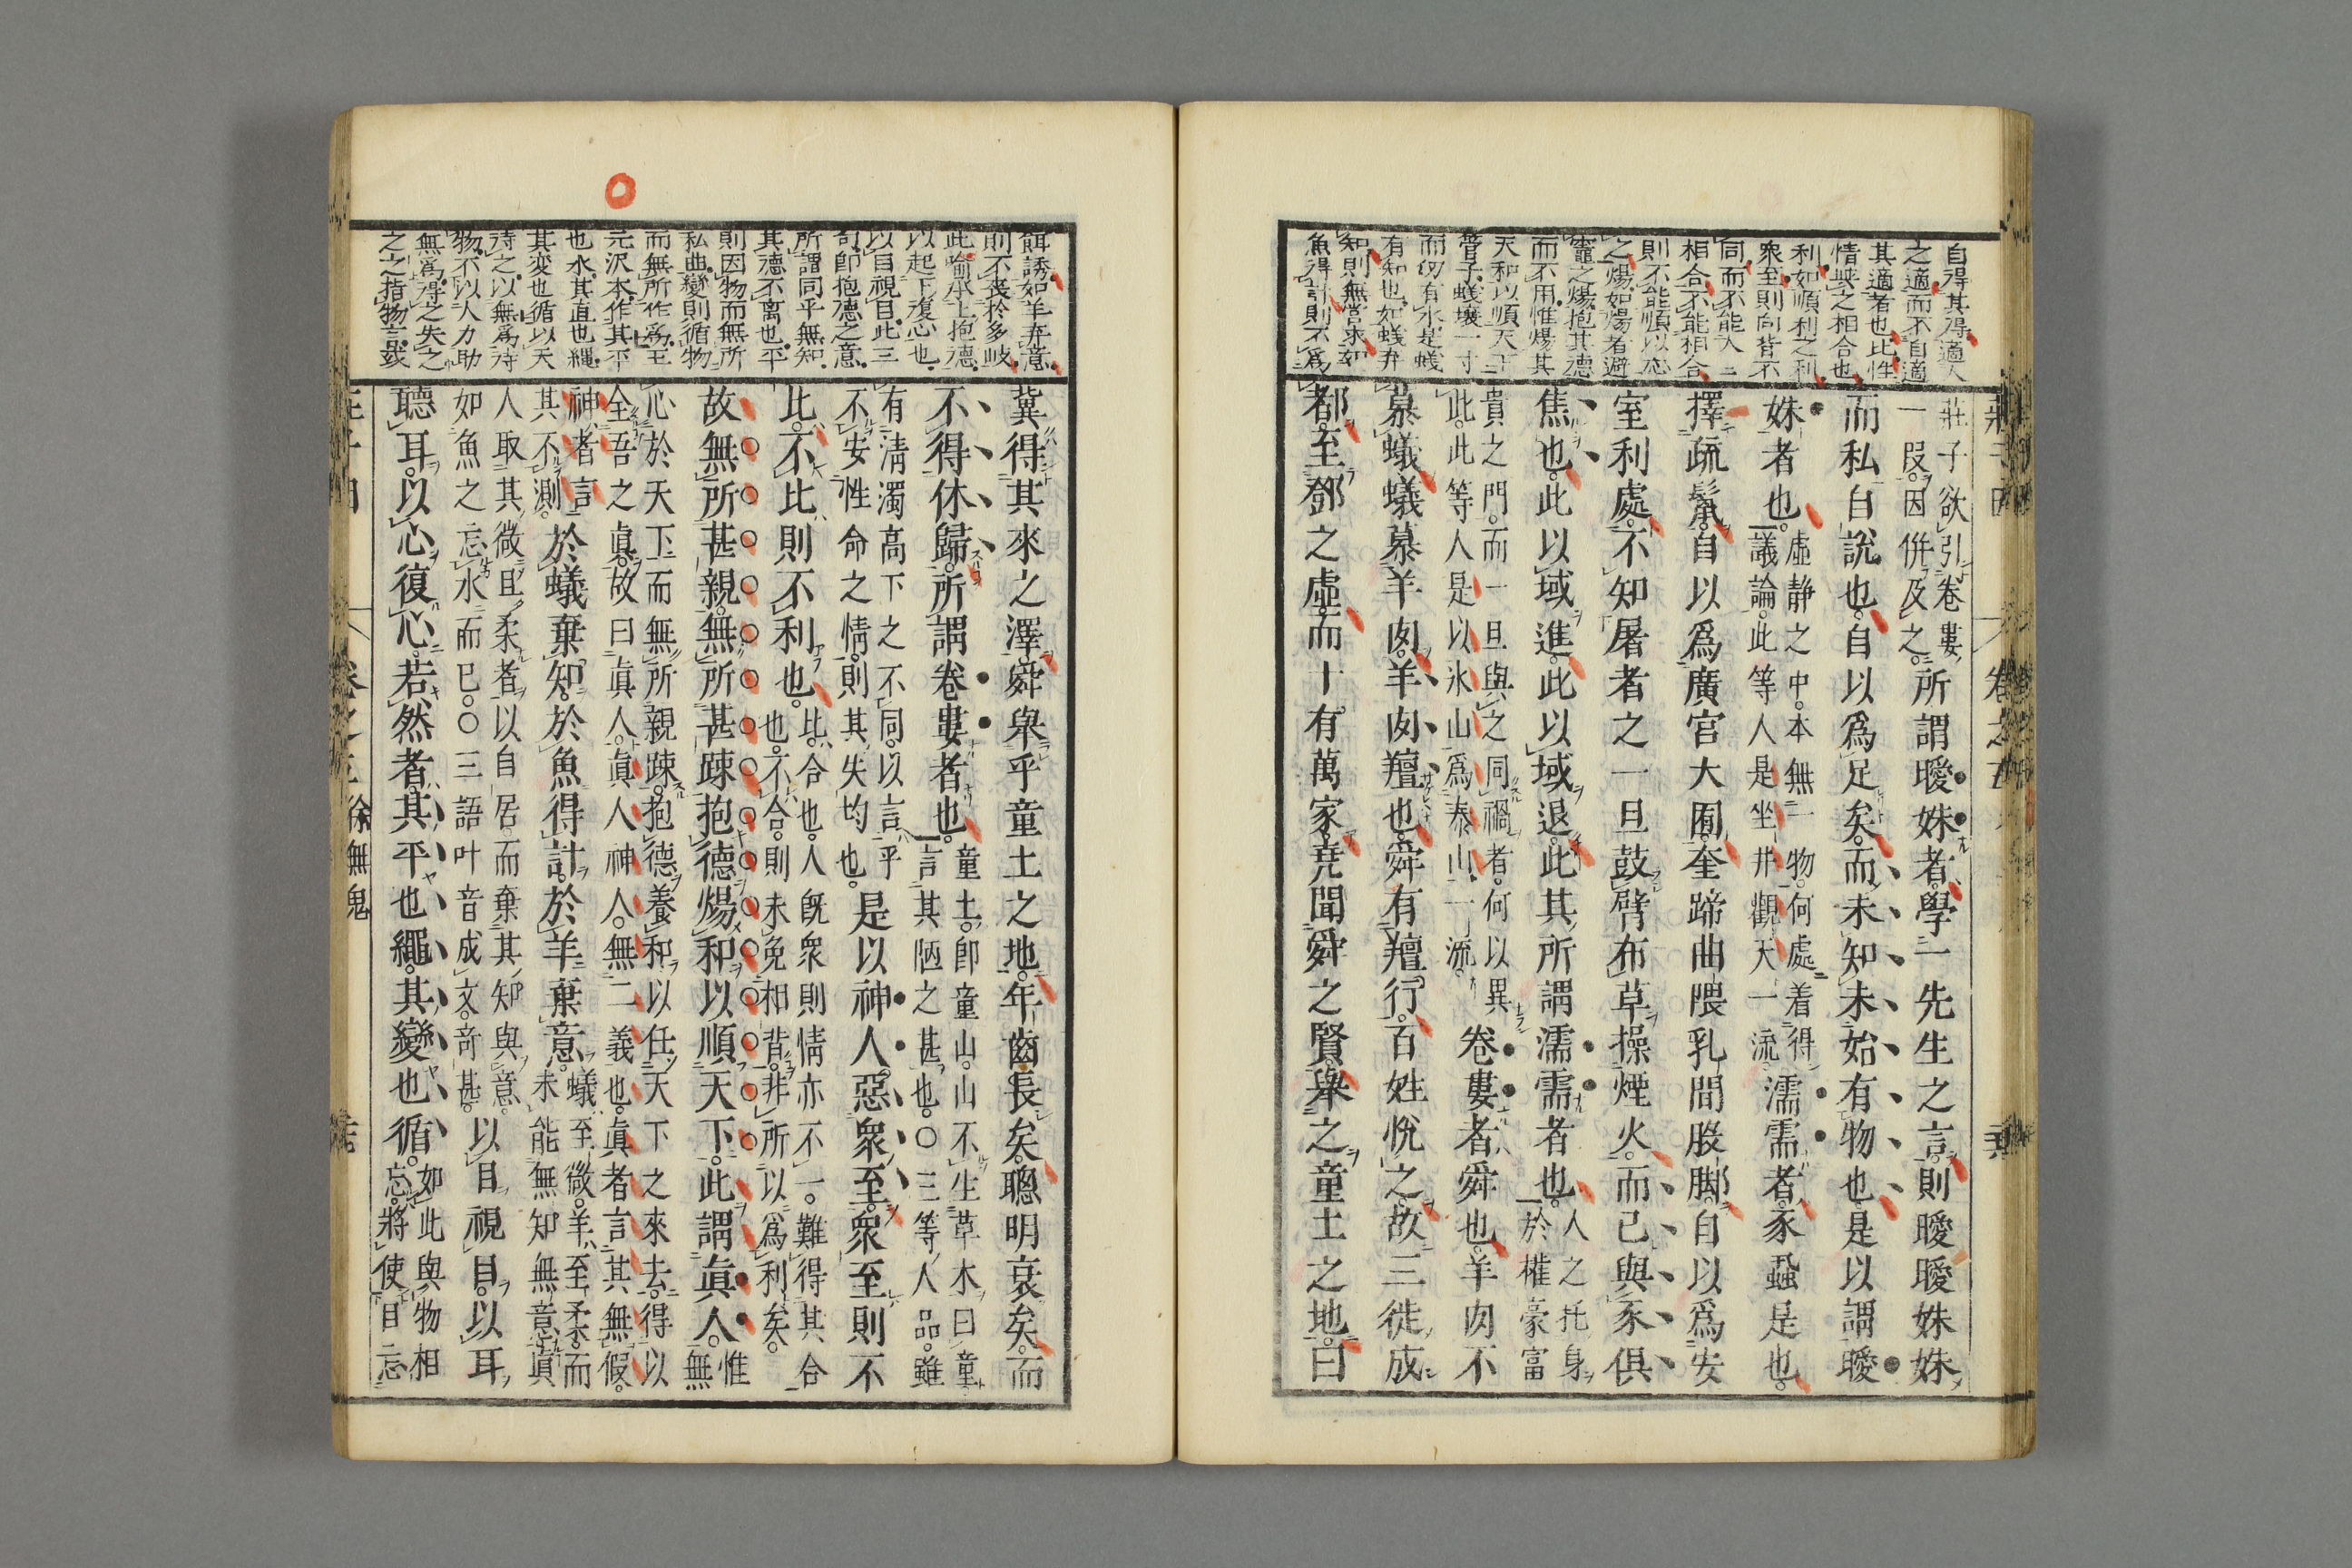 莊子因　卷之五
自得其得適人
之適而不自適
其適者也比性
情與之相合也
利如順利之利
衆至則向背不
同而不能大二
相合不能相合
則不能順以応
之煬如煬者避
竈之煬抱其德
而不用惟煬其
天和以順天下
管子蟻壤一寸
而仭有水是蟻
有知也如蟻弃
知則無營求如
魚得計則不爲
莊子欲引卷婁
一段因併及之
所謂曖姝者學一先生之言則曖曖姝姝
而私自說也自以爲足矣而未知未始有物也是以謂曖
姝者也
虛靜之中本無一物何處着得
議論此等人是坐井觀天一流
濡需者豕蝨是也
擇疏鬣自以爲廣宮大囿奎蹄曲隈乳間股脚自以爲安
室利處不知屠者之一旦鼓臂布草操煙火而己與豕俱
焦也此以域進此以域退此其所謂濡需者也
人之托身
於權豪富
貴之門而一旦與之同禍者何以異
此此等人是以氷山爲泰山一流
卷婁者舜也羊肉不
慕蟻蟻慕羊肉羊肉羶也舜有羶行百姓悅之故三徙成
都至鄧之虛而十有萬家尭聞舜之賢舉之童土之地曰
餌誘如羊弃意
則不喪於多岐
此喻承上抱德
以起下復心也
以目視目此三
句即抱德之意
所謂同乎無知
其德不离也平
則因物而無所
私曲變則循物
而無所作爲至
元沢本作其平
也水其直也繩
其変也循以天
待之以無爲待
物不以人力助
無爲得之失之
之之指物言或
冀得其來之澤舜舉乎童土之地年齒長矣聰明衰矣而
不得休歸所謂卷婁者也
童土即童山山不生草木曰童
言其陋之甚也○三等人品雖
有清濁高下之不同以言乎
不安性命之情則其失均也
是以神人惡衆至衆至則不
比不比則不利也
比合也人旣衆則情亦不一難得其合
也不合則未免相背非所以爲利矣
故無所甚親無所甚踈抱德煬和以順天下此謂眞人
惟
無
心於天下而無所親踈抱德養和以任天下之來去得以
全吾之眞故曰眞人眞人神人無二義也眞者言其無假
神者言
其不測
於蟻棄知於魚得計於羊棄意
蟻至微羊至柔而
未能無知無意眞
人取其微且柔者以自居而棄其知與意
如魚之忘水而已○三語叶音成文奇甚
以目視目以耳
聽耳以心復心若然者其平也繩其變也循
如此與物相
忘將使目忘
卷之五　徐無鬼